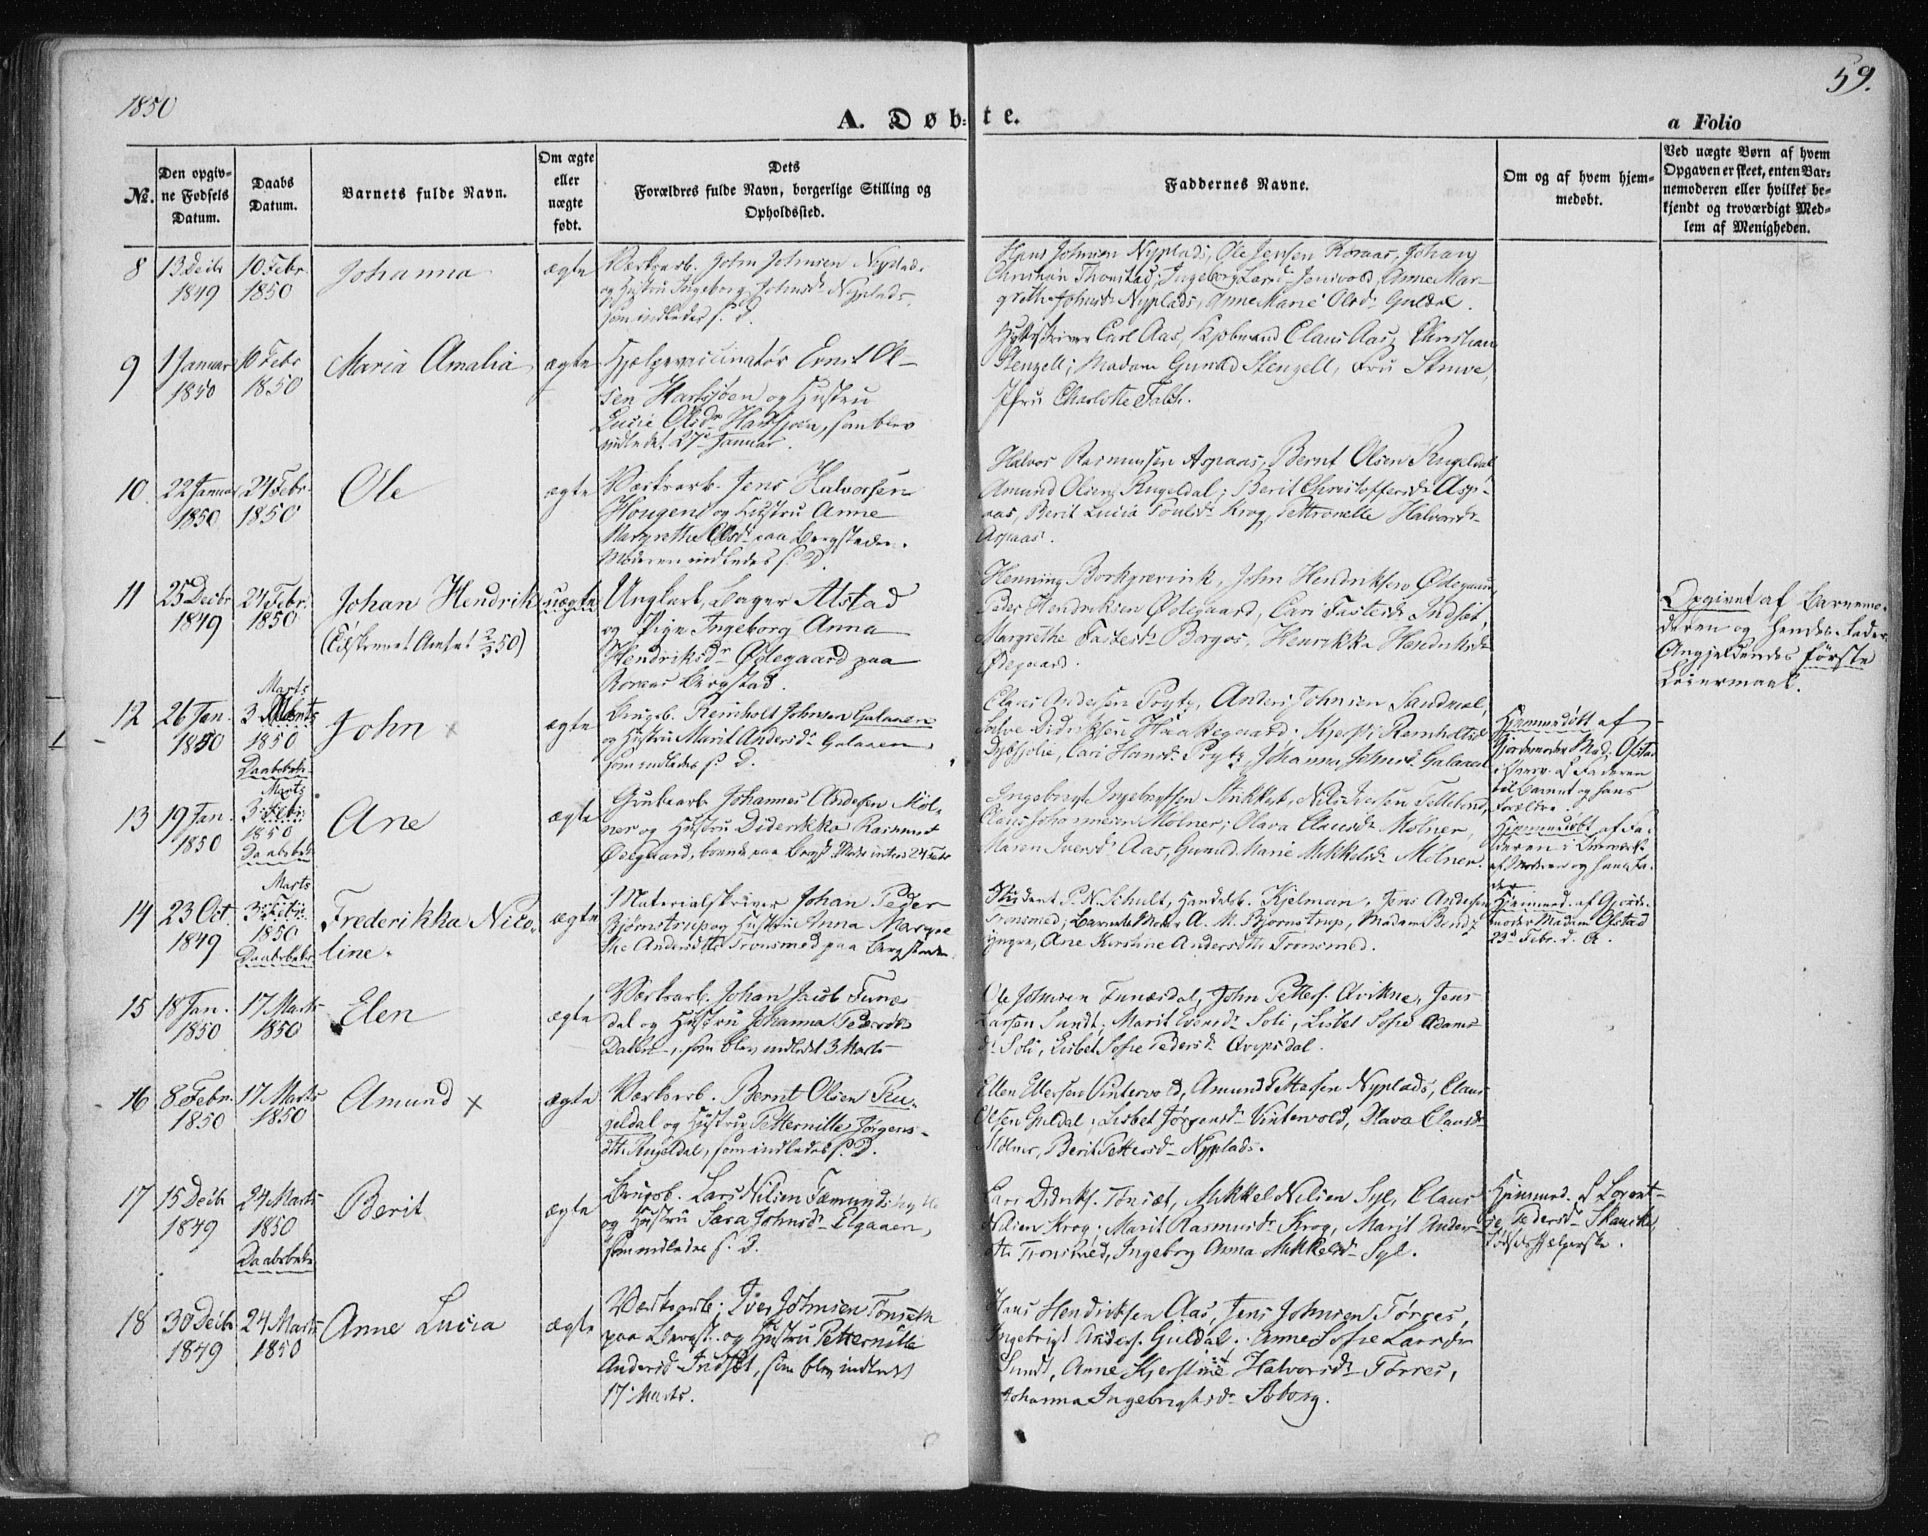 1850
59.
A. Døb-
te.
a Folio
No.
Den opgiv-
ne Fødsels
Datum.
Daabs
Datum.
Barnets fulde Navn.
Om ægte
eller
uægte
født.
Dets
Forældres fulde Navn, borgerlige Stilling og
Opholdssted.
Faddernes Navne.
Om og af hvem hjem-
medøbt.
Ved uægte Børn af hvem
Opgaven er skeet, enten Bar-
nemoderen eller hvilket be-
kjendt og troværdigt Med-
lem af Menigheden.
8
13 Decbr
1849
10 Febr.
1850
Johanna
ægte
Værksarb. John Johnsen Nyplads
og Hustru Ingeborg Johnsdr Nyplads,
som indledes s. D.
Hans Johnsen Nyplads, Ole Jensen Roraas, Johan
Christian Thomstad; Ingeborg Larsdr Jensvold, Anne Mar-
grethe Johnsdr Nyplads, Anne Marie Olsdr Guldal.
9
1 Januar
1850
10 Febr
1850
Maria Amalia
ægte
Hjelpevaccinatør Ernst Ol-
sen Harsjøen og Hustru
Lucie Olsdr Harsjøen, som blev
indledet 27de Januar.
Hytteskriver Carl Aas, Kjøbmand Claus Aas, Christian
Stenzell; Madam Gunild Stenzell, Fru Struve,
Jfru Charlotte Falck.
10.
22 Januar
1850
24 Febr.
1850
Ole
ægte
Værksarb. Jens Halvorsen
Hougen og Hustru Anne
Margrethe Olsdr paa Bergstaden.
Moderen indledes s. D.
Halvor Rasmussen Aspaas, Bernt Olsen Rugeldal,
Amund Olsen Rugeldal; Berit Christoffersdr Asp-
aas, Berit Lucia Poulsdr Krog, Pettronelle Halvorsdr
Aspaas.
11
25 Decbr
1849
24 Febr.
1850
Johan Hendrik
uægte
Ungkarl, Bager Alstad
og Pige Ingeborg Anna
Hendriksdr Ødegaard paa
Roraas Bergstad.
Henning Borkgrevink, John Hendriksen Ødegaard,
Peder Hendriksen Ødegaard, Cari Fastersdr Indset,
Margrethe Fastersdr Borgos, Henrikke Hendriksdr
Ødegaard.
Opgivet af Barnemo-
deren og hendes Fader.
Angjeldendes første
Leiermaal.
12
26 Jan.
1850
Marts
3
1850
Daabsbek.
John ×
ægte
Brugsb. Reinholt Johnsen Galaaen
og Hustru Marit Andersdr Galaaen,
som indledes s. D.
Claus Andersen Prytz, Anders Johnsen Sandmæl,
Didriksen Haakegaard; Kjersti Reinholtsdr
Cari Hansdr Prytz, Johanna Johnsdr Galaaen
Hjemmedøbt af
Gjordemoder Mad. Ofstad
i Overv. af Faderen
til Barnet og hans
Forældre.
13
19 Jan.
1850
Marts
3 Febr.
1850
Daabsbek
Ane
ægte
Grubearb. Johannes Andersen Møl-
ner og Hustru Didrikka Rasmusd
Ødegaard, boende paa Bergst. Mod. intro. 24 Febr
Ingebrigt Ingebrigtsen Stikket, Nils Iversen Tetteland,
Claus Johannesen Mølner; Olava Clausdr Mølner,
Maren Iversdr Aas, Gunild Marie Mikkelsdr Mølner.
Hjemmedøbt af Fa-
deren i Overvær
af Moderen og hans Fa-
der
14
23 Oct.
1849
Marts
3 Febr.
1850
Daabsbek.
Frederikka Nico-
line.
ægte
Materialskriver Johan Peder
Bjørnstrup og Hustru Anna Margre-
the Andersdtr Tronsmed paa Bergstaden.
Student P. N. Schult, Handelsb. Kjelman, Jens Andersen
Tronsmed; Barnets Moder A. M. Bjørnstrup, Madam Bendz
Yngre, Ane Kirstine Andersdtr Tronsmed.
Hjemmed. af Gjorde-
moder Madam Ofstad
23de Febr. d. A.
15
18 Jan.
1850
17 Marts
1850
Elen
ægte
Værksarb. Johan Jacob Funæs-
dal og Hustru Johanna Pedersdr
som blev indledt 3 Marts
Ole Johnsen Funæsdal, John Petters. Qvikne, Jens
Larsen Sundt; Marit Eversdr Soli, Lisbet Sofie Adams-
dr Soli, Lisbet Sofie Pedersdr Qvipsdal.
16
8 Febr.
1850
17 Marts
1850
Amund ×
ægte
Værksarb. Bernt Olsen Ru-
geldal og Hustru Petternille Jørgens-
dtr Rugeldal, som indledes s. D.
Ellen Ellersen Vintervold, Amund Pettersen Nyplads, Claus
Olsen Guldal; Lisbet Jørgensdr Vintervold, Olava Clausdr
Mølner, Berit Pettersdr Nyplads.
17
15 Decbr
1849
24 Marts
1850
Daabsbek.
Berit
ægte
Brugsb. Lars Nilsen Fæmundshytte
og Hustru Sara Johnsdr Elgaaen,
som indledes s. D.
Lars Didriks. Tonset, Mikkel Nilsen Syl, Claus
Nilsen Krog; Marit Rasmusdr Krog, Marit Anders-
dtr Tronsmed, Ingeborg Anna Mikkelsdr Syl.
Hjemmed. af Lorent-
ze Pedersdr Skancke
Fødselshjelperske.
18
30 Decbr
1849
24 Marts
1850
Anne Lucia
ægte
Værksarb. Iver Johnsen Tonseth
paa Bergst. og Hustru Petternille
Andersd Indset, som blev indledt
17 Marts.
Hans Hendriksen Aas, Jens Johnsen Törres,
Ingebrigt Anders. Guldal; Anne Sofie Larsdr
Sundt, Anne Kjerstine Halvorsdr Törres,
Johanna Ingebrigtsdr Soborg.